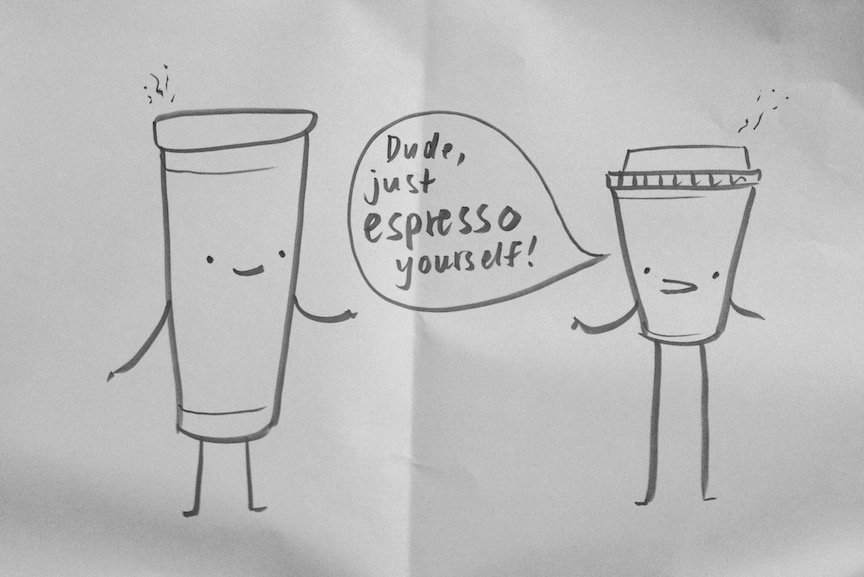 Dude,
just
espresso
yourself!